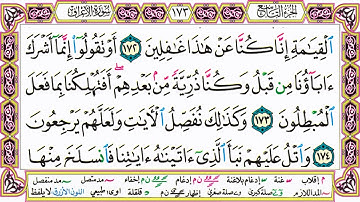 الجزء التاسع ١٧٣ سورة الأعراف
ٱلۡقِيَٰمَةِ إِنَّا كُنَّا عَنۡ هَٰذَا غَٰفِلِينَ ١٧٢ أَوۡ تَقُولُوٓاْ إِنَّمَآ أَشۡرَكَ
ءَابَآؤُنَا مِن قَبۡلُ وَكُنَّا ذُرِّيَّةٗ مِّنۢ بَعۡدِهِمۡۖ أَفَتُهۡلِكُنَا بِمَا فَعَلَ
ٱلۡمُبۡطِلُونَ ١٧٣ وَكَذَٰلِكَ نُفَصِّلُ ٱلۡأٓيَٰتِ وَلَعَلَّهُمۡ يَرۡجِعُونَ
١٧٤ وَٱتۡلُ عَلَيۡهِمۡ نَبَأَ ٱلَّذِيٓ ءَاتَيۡنَٰهُ ءَايَٰتِنَا فَٱنسَلَخَ مِنۡهَا